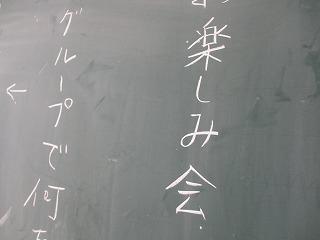 楽しみ会.
グループで何
←